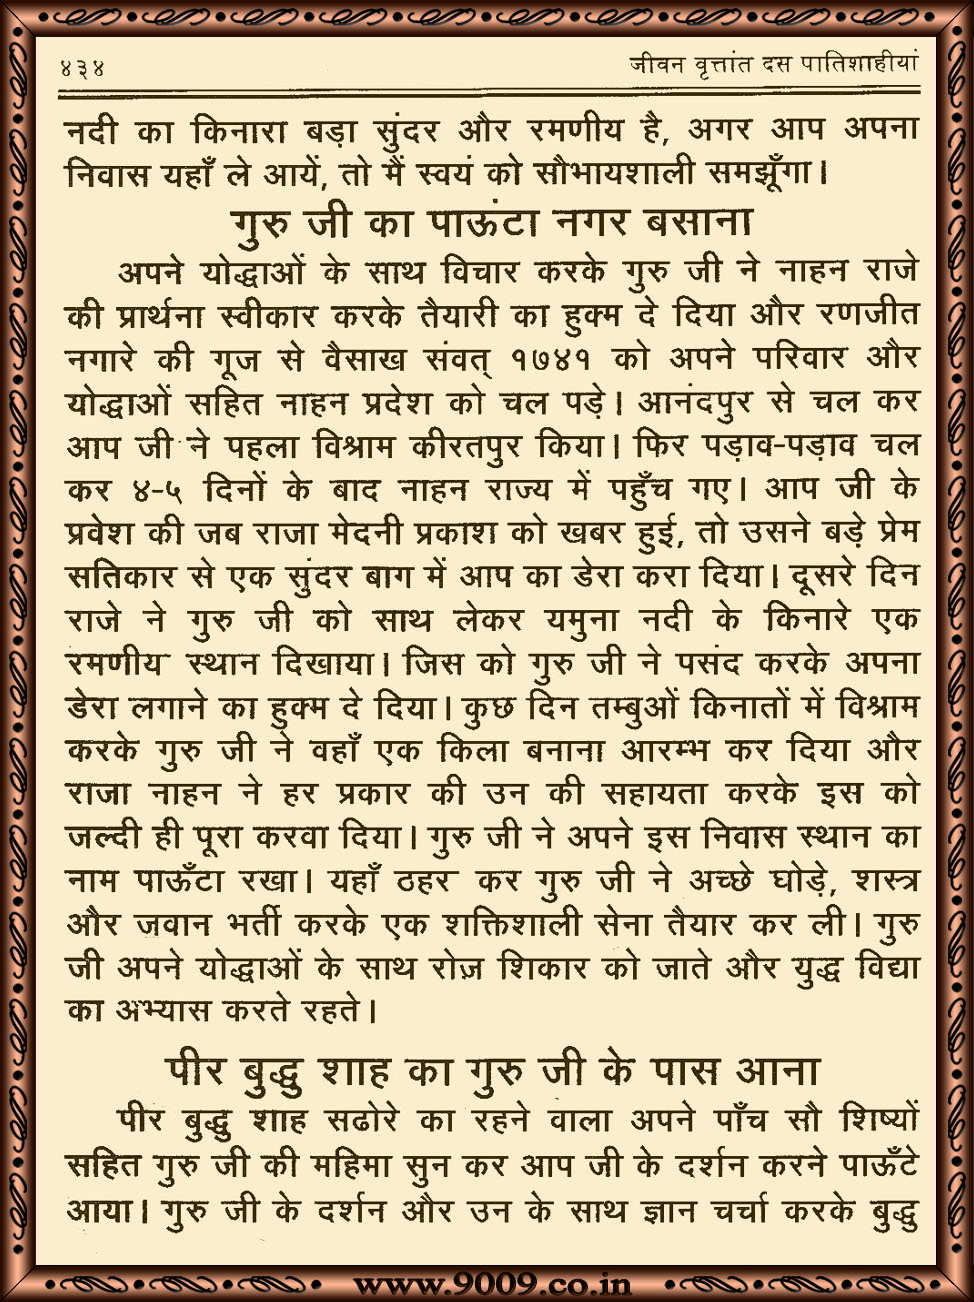 ४३४ जीवन वृत्तांत दस पातिशाहीयां
नदी का किनारा बड़ा सुंदर और रमणीय है, अगर आप अपना
निवास यहाँ ले आयें, तो मैं स्वयं को सौभायशाली समझूँगा।
गुरु जी का पाऊंटा नगर बसाना
अपने योद्धाओं के साथ विचार करके गुरु जी ने नाहन राजे
की प्रार्थना स्वीकार करके तैयारी का हुक्म दे दिया और रणजीत
नगारे की गूज से वैसाख संवत् १७४१ को अपने परिवार और
योद्धाओं सहित नाहन प्रदेश को चल पड़े। आनंदपुर से चल कर
आप जी ने पहला विश्राम कीरतपुर किया। फिर पड़ाव-पड़ाव चल
कर ४-५ दिनों के बाद नाहन राज्य में पहुँच गए। आप जी के
प्रवेश की जब राजा मेदनी प्रकाश को खबर हुई, तो उसने बड़े प्रेम
सतिकार से एक सुंदर बाग में आप का डेरा करा दिया। दूसरे दिन
राजे ने गुरु जी को साथ लेकर यमुना नदी के किनारे एक
रमणीय स्थान दिखाया। जिस को गुरु जी ने पसंद करके अपना
डेरा लगाने का हुक्म दे दिया। कुछ दिन तम्बुओं किनातों में विश्राम
करके गुरु जी ने वहाँ एक किला बनाना आरम्भ कर दिया और
राजा नाहन ने हर प्रकार की उन की सहायता करके इस को
जल्दी ही पूरा करवा दिया। गुरु जी ने अपने इस निवास स्थान का
नाम पाऊँटा रखा। यहाँ ठहर कर गुरु जी ने अच्छे घोड़े, शस्त्र
और जवान भर्ती करके एक शक्तिशाली सेना तैयार कर ली। गुरु
जी अपने योद्धाओं के साथ रोज़ शिकार को जाते और युद्ध विद्या
का अभ्यास करते रहते।
पीर बुद्धु शाह का गुरु जी के पास आना
पीर बुद्धु शाह सढोरे का रहने वाला अपने पाँच सौ शिष्यों
सहित गुरु जी की महिमा सुन कर आप जी के दर्शन करने पाऊँटे
आया। गुरु जी के दर्शन और उन के साथ ज्ञान चर्चा करके बुद्धु
www.9009.co.in